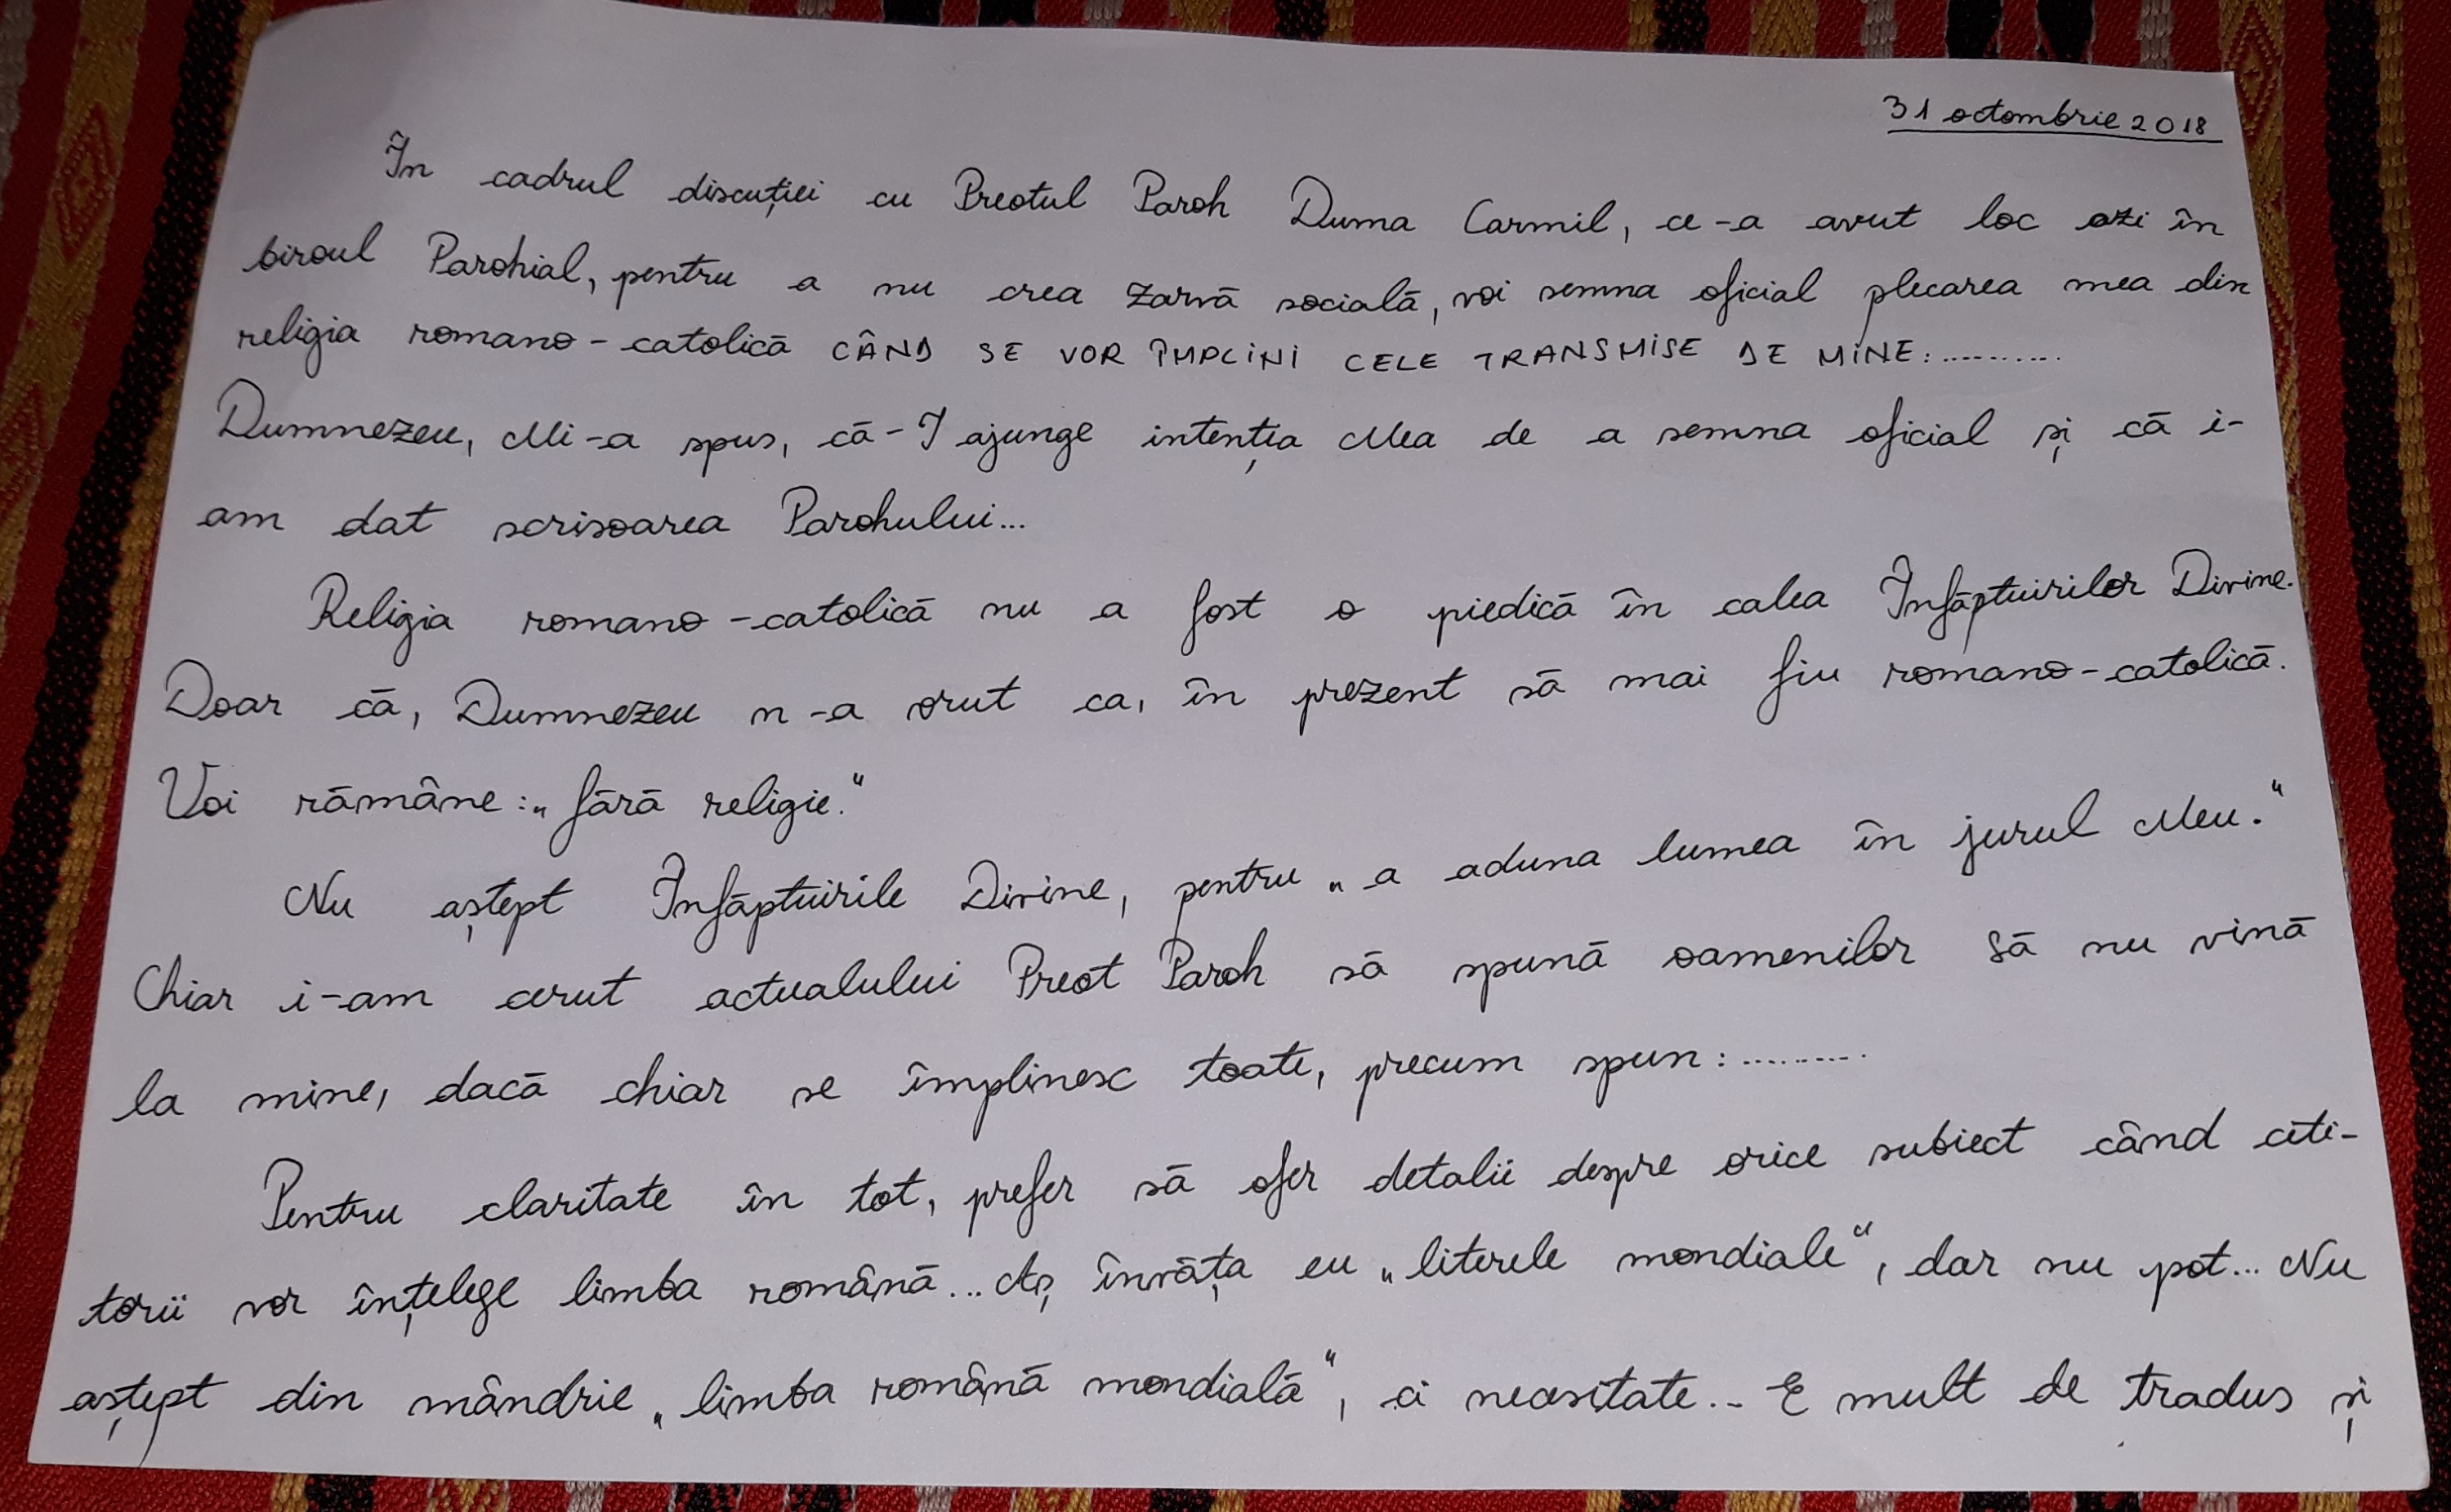 31 octombrie 2018
În cadrul discuției cu Preotul Paroh Duma Carmil, ce-a avut loc azi în
biroul Parohial, pentru a nu crea zarvă socială, voi semna oficial plecarea mea din
religia romano-catolică CÂND SE VOR ÎMPLINI CELE TRANSMISE DE MINE:..........
Dumnezeu, Mi-a spus, că-I ajunge intenția Mea de a semna oficial și că i-
am dat scrisoarea Parohului...
Religia romano-catolică nu a fost o piedică în calea Înfăptuirilor Divine.
Doar că, Dumnezeu n-a vrut ca, în prezent să mai fiu romano-catolică.
Voi rămâne: „fără religie."
Nu aștept Înfăptuirile Divine, pentru „a aduna lumea în jurul Meu."
Chiar i-am cerut actualului Preot Paroh să spună oamenilor să nu vină
la mine, dacă chiar se împlinesc toate, precum spun:..........
Pentru claritate în tot, prefer să ofer detalii despre orice subiect când citi-
torii vor înțelege limba română... Aș învăța eu „literele mondiale", dar nu pot... Nu
aștept din mândrie „limba română mondială", ci necesitate... E mult de tradus și